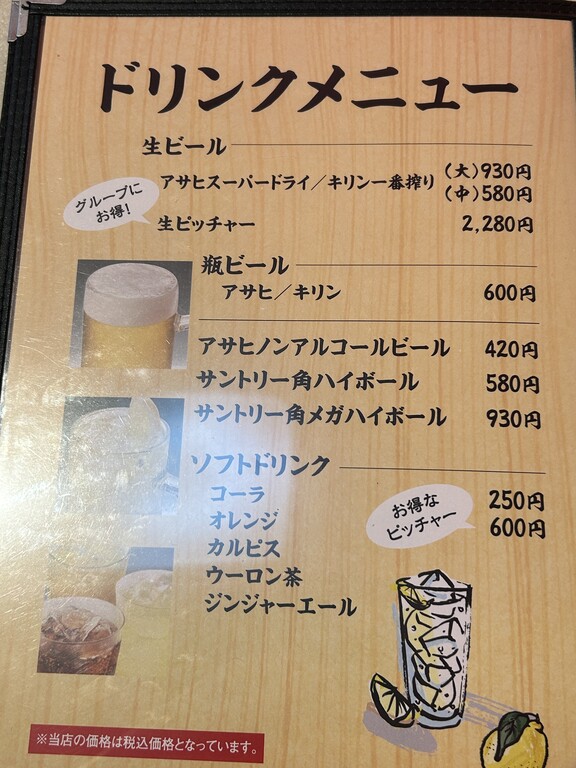 ドリンクメニュー
生ビール
アサヒスーパードライ／キリン一番搾り (大)930円
(中)580円
グループに
お得!
生ピッチャー 2,280円
瓶ビール
アサヒ／キリン 600円
アサヒノンアルコールビール 420円
サントリー角ハイボール 580円
サントリー角メガハイボール 930円
ソフトドリンク
コーラ 250円
オレンジ
お得な
ピッチャー 600円
カルピス
ウーロン茶
ジンジャーエール
※当店の価格は税込価格となっています。